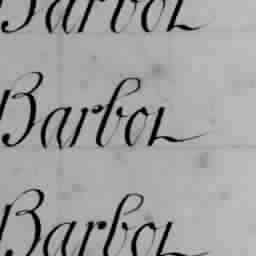 Barbou
Barbou
Barbou